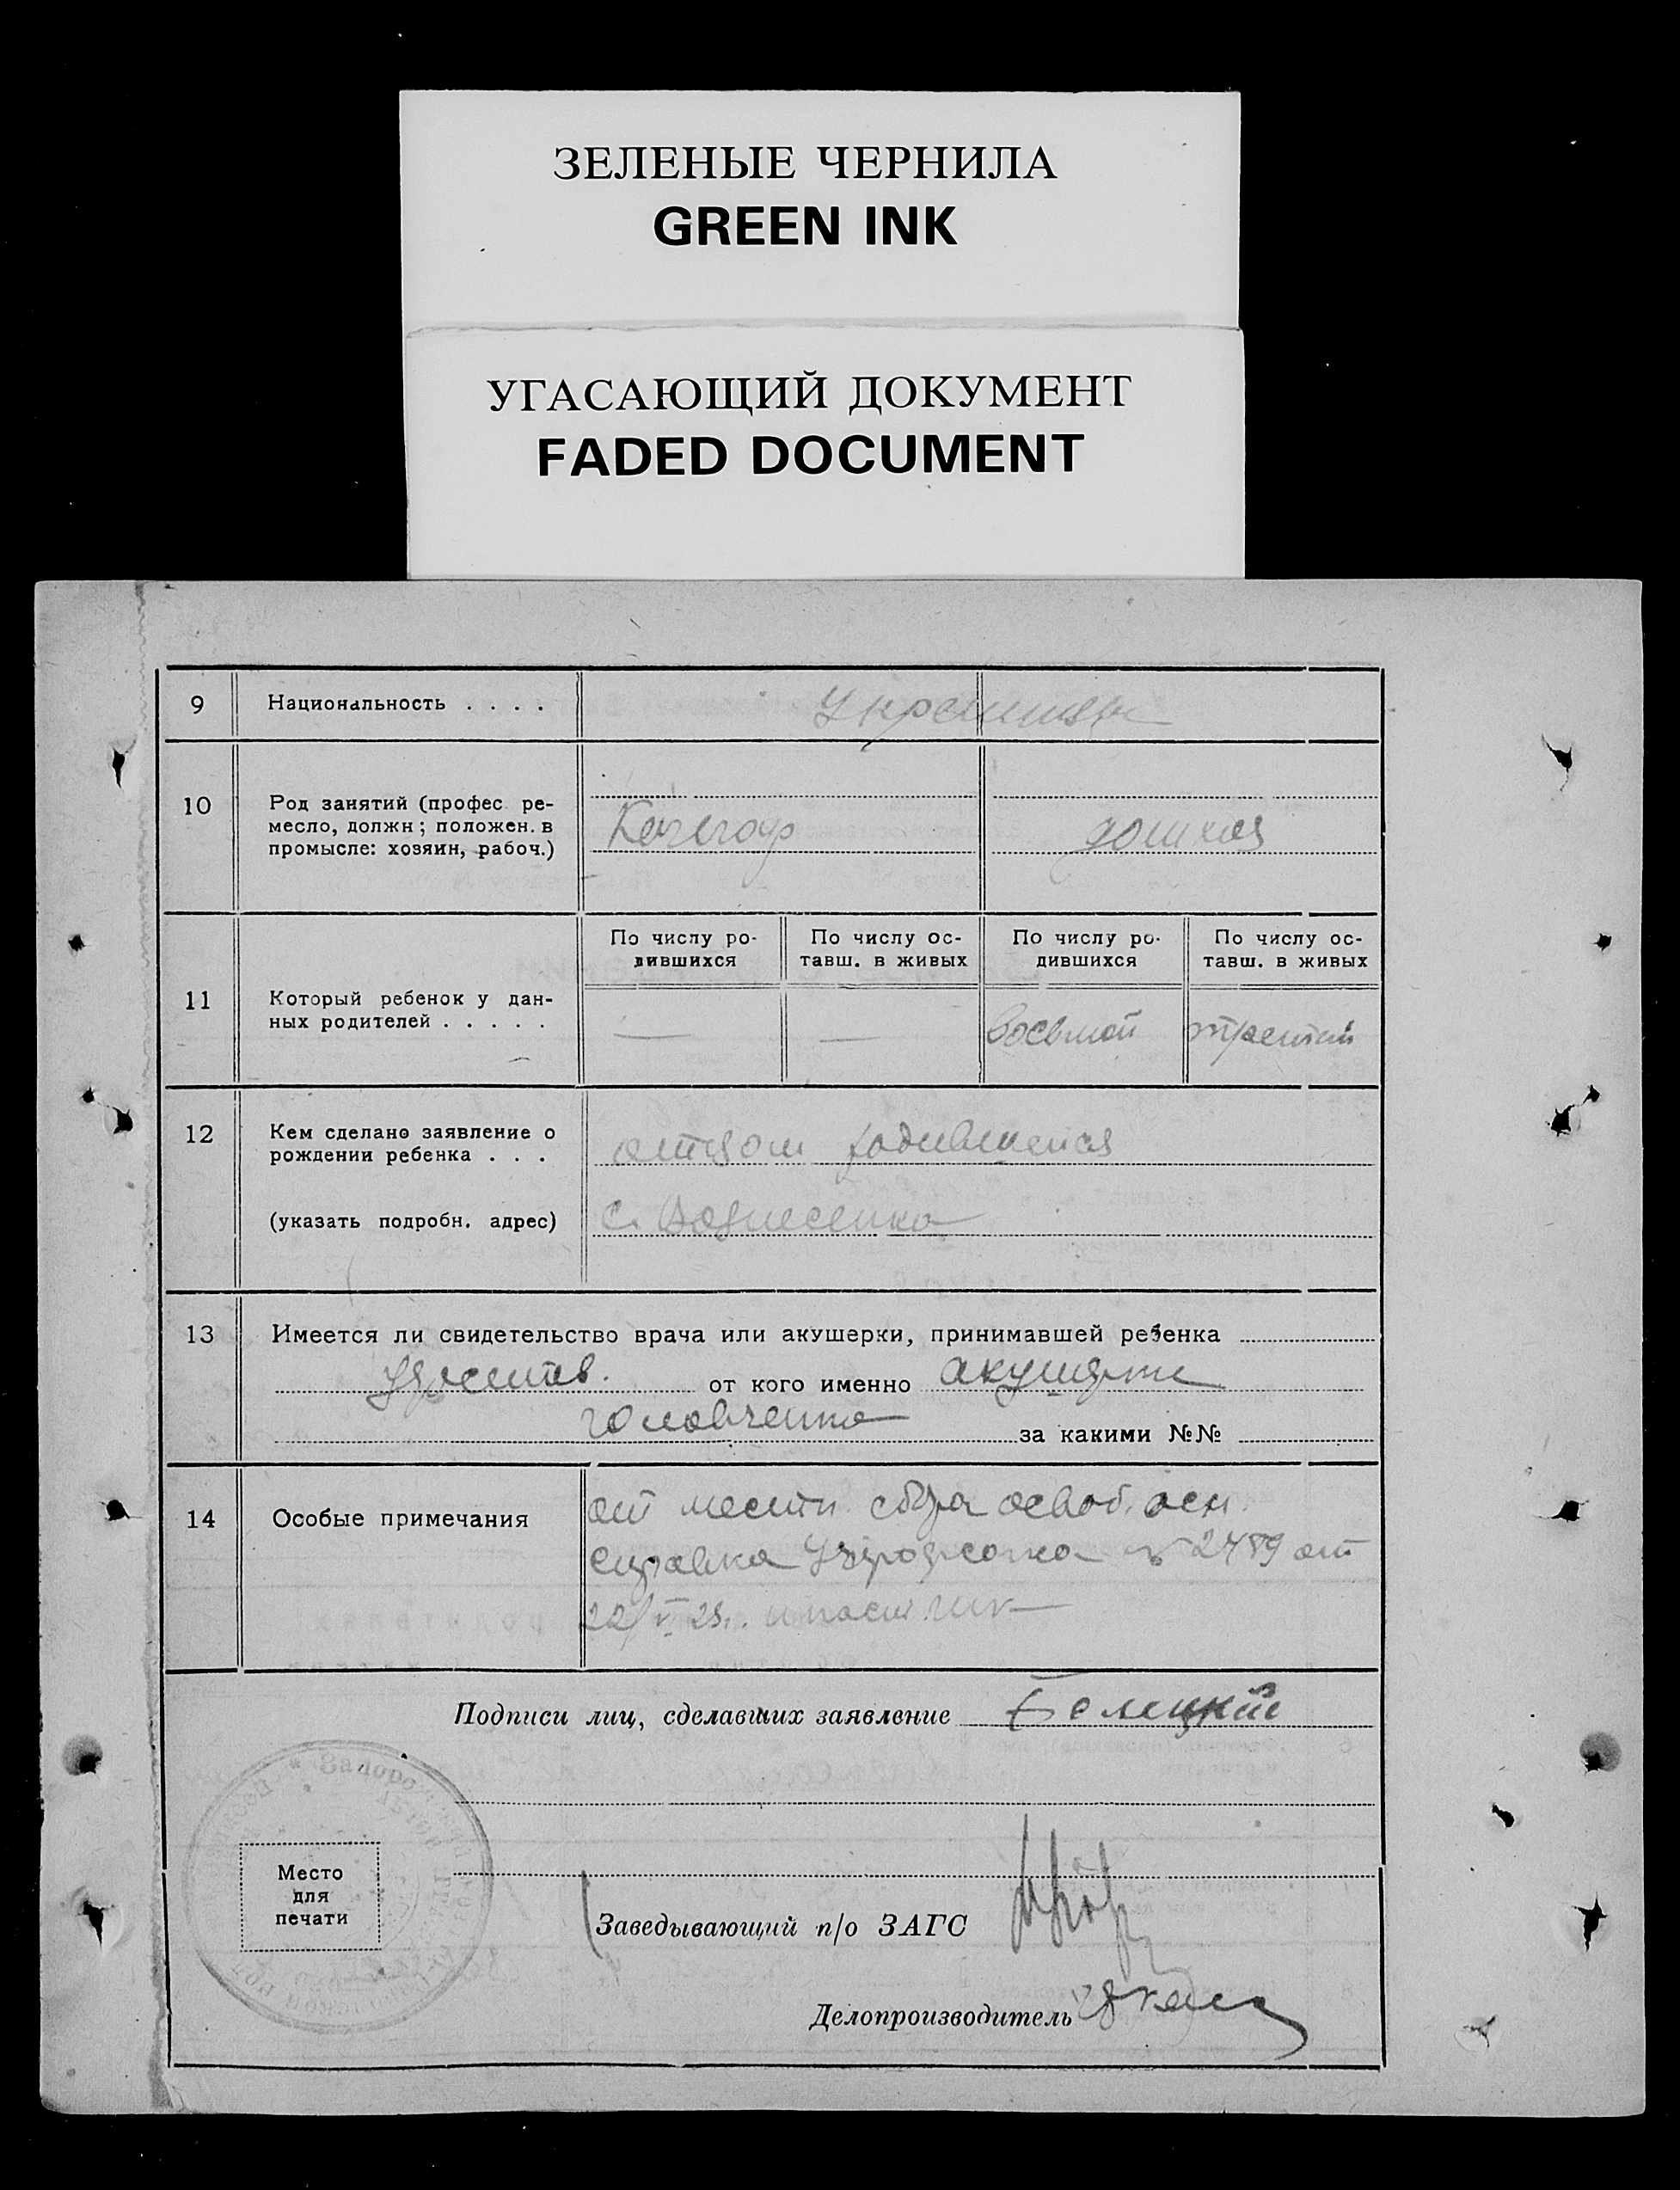 ЗЕЛЕНЫЕ ЧЕРНИЛА
GREEN INK
УГАСАЮЩИЙ ДОКУМЕНТ
FADED DOCUMENT
9 Национальность . . . . Украинцы
10 Род занятий (профес ре-
месло, должн; положен. в
промысле: хозяин, рабоч.)
домхоз
По числу ро-
дившихся
По числу ос-
тавш. в живых
По числу ро-
дившихся
По числу ос-
тавш. в живых
11 Который ребенок у дан-
ных родителей . . . . .
— — восьмой третий
12 Кем сделано заявление о
рождении ребенка . . . отцом родившегося
(указать подробн. адрес) с. Вознесенка
13 Имеется ли свидетельство врача или акушерки, принимавшей ребенка
удостов. от кого именно акушерки
Головченко за какими №№
14 Особые примечания
от местн. сбора освоб. осн.
справка № 2489 от
22/V 29.
Подписи лиц, сделавших заявление Белецкий
Место
для
печати
Заведывающий п/о ЗАГС
Делопроизводитель